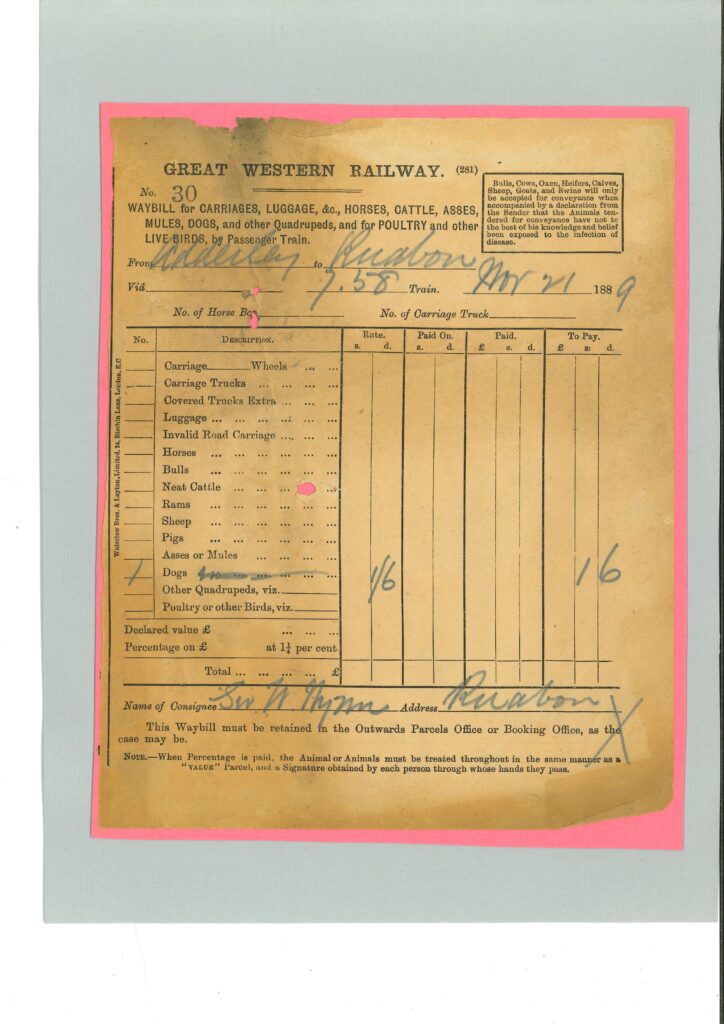 GREAT WESTERN RAILWAY. (281)
No. 30
WAYBILL for CARRIAGES, LUGGAGE, &c., HORSES, CATTLE, ASSES,
MULES, DOGS, and other Quadrupeds, and for POULTRY and other
LIVE BIRDS, by Passenger Train.
Bulls, Cows, Oxen, Heifers, Calves,
Sheep, Goats, and Swine will only
be accepted for conveyance when
accompanied by a declaration from
the Sender that the Animals ten-
dered for conveyance have not to
the best of his knowledge and belief
been exposed to the infection of
disease.
From Adderley to Ruabon
Viâ 7.58 Train. Nov 21 1889
No. of Horse Box No. of Carriage Truck
No. DESCRIPTION. Rate. Paid On. Paid. To Pay.
s. d. s. d. £ s. d. £ s. d.
Carriage Wheels ... ...
Carriage Trucks ... ... ... ...
Covered Trucks Extra ... ... ...
Luggage ... ... ... ... ... ...
Invalid Road Carriage ... ... ...
Horses ... ... ... ... ...
Bulls ... ... ... ... ...
Neat Cattle ... ... ... ...
Rams ... ... ... ... ...
Sheep ... ... ... ... ...
Pigs ... ... ... ... ...
Asses or Mules ... ... ... ...
1 Dogs ... ... ... ... ... 1/6 1 6
Other Quadrupeds, viz.
Poultry or other Birds, viz.
Declared value £ ... ... ...
Percentage on £ at 1¼ per cent.
Total ... ... ... ... £
Name of Consignee Sir W Wynn Address Ruabon
This Waybill must be retained in the Outwards Parcels Office or Booking Office, as the
case may be.
NOTE.—When Percentage is paid, the Animal or Animals must be treated throughout in the same manner as a
"VALUE" Parcel, and a Signature obtained by each person through whose hands they pass.
Waterlow Bros. & Layton, Limited, 24, Birchin Lane, London, E.C